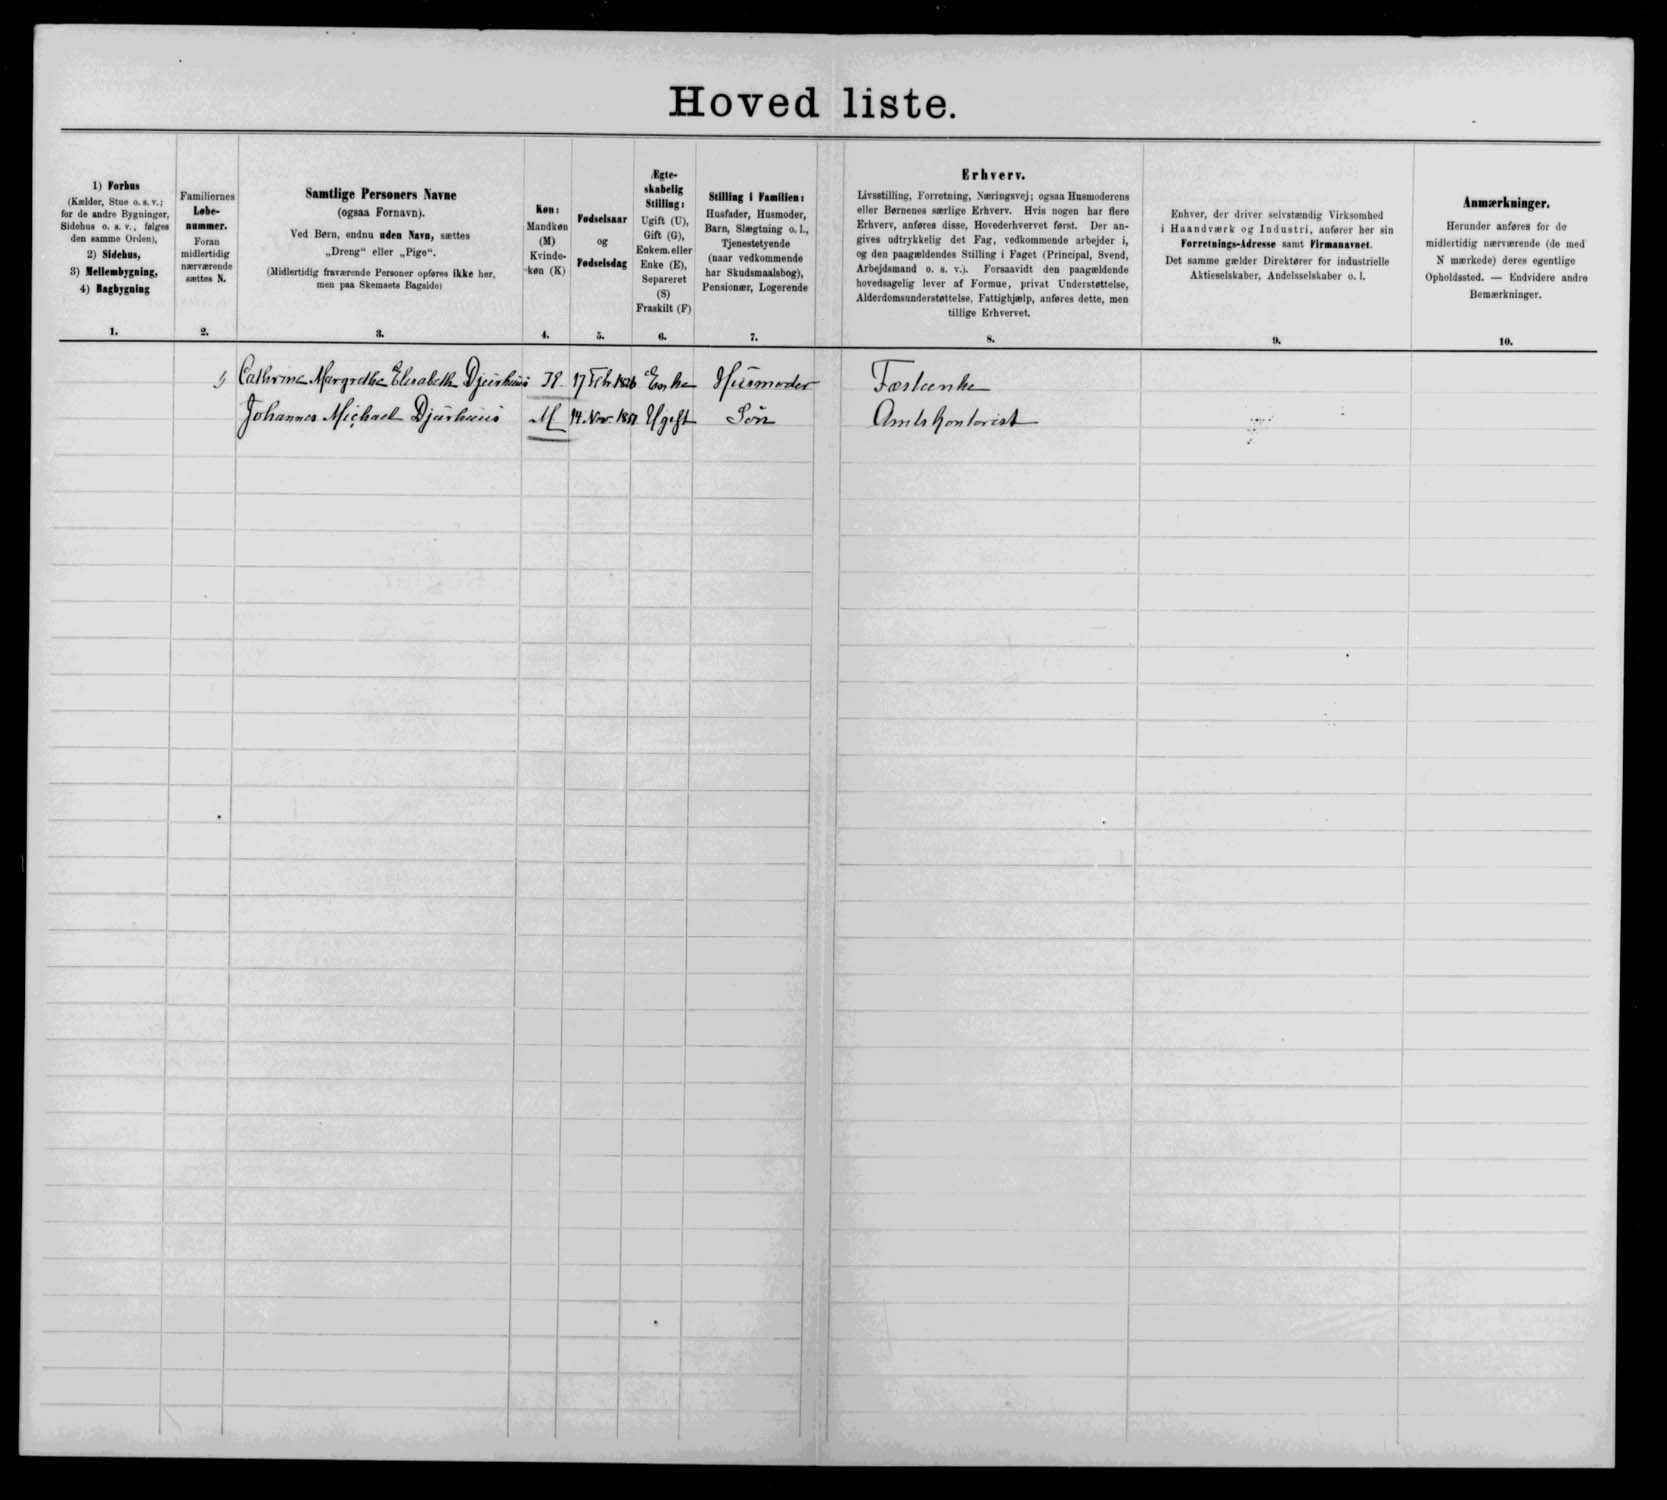 Hoved liste.
1) Forhus
(Kælder, Stue o. s. v.;
for de andre Bygninger,
Sidehus o. s. v., følges
den samme Orden),
2) Sidehus,
3) Mellembygning,
4) Bagbygning
1.
Familiernes
Løbe-
nummer.
Foran
midlertidig
nærværende
sættes N.
2.
Samtlige Personers Navne
(ogsaa Fornavn).
Ved Børn, endnu uden Navn, sættes
„Dreng“ eller „Pige“.
(Midlertidig fraværende Personer opføres ikke her,
men paa Skemaets Bagside)
3.
Køn:
Mandkøn
(M)
Kvinde-
køn (K)
4.
Fødselsaar
og
Fødselsdag
5.
Ægte-
skabelig
Stilling:
Ugift (U),
Gift (G),
Enkem. eller
Enke (E),
Separeret
(S)
Fraskilt (F)
6.
Stilling i Familien:
Husfader, Husmoder,
Barn, Slægtning o. l.,
Tjenestetyende
(naar vedkommende
har Skudsmaalsbog),
Pensionær, Logerende
7.
Erhverv.
Livsstilling, Forretning, Næringsvej; ogsaa Husmoderens
eller Børnenes særlige Erhverv. Hvis nogen har flere
Erhverv, anføres disse, Hovederhvervet først. Der an-
gives udtrykkelig det Fag, vedkommende arbejder i,
og den paagældendes Stilling i Faget (Principal, Svend,
Arbejdsmand o. s. v.). Forsaavidt den paagældende
hovedsagelig lever af Formue, privat Understøttelse,
Alderdomsunderstøttelse, Fattighjælp, anføres dette, men
tillige Erhvervet.
8.
Enhver, der driver selvstændig Virksomhed
i Haandværk og Industri, anfører her sin
Forretnings-Adresse samt Firmanavnet.
Det samme gælder Direktører for industrielle
Aktieselskaber, Andelsselskaber o. l.
9.
Anmærkninger.
Herunder anføres for de
midlertidig nærværende (de med
N mærkede) deres egentlige
Opholdssted. — Endvidere andre
Bemærkninger.
10.
Cathrine Margrethe Elisabeth Djurhuus K. 17 Feb. 1826 Enke Husmoder Fæsteenke
Johannes Michael Djurhuus M 14. Nov. 1851 Ugift Søn Amtskontorist